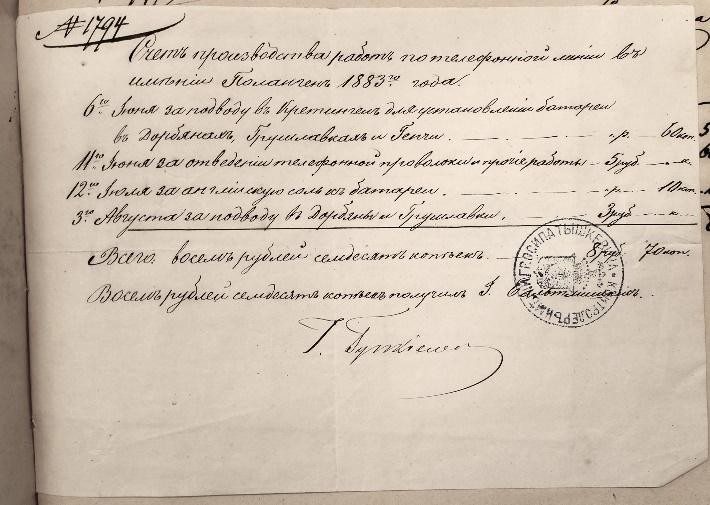 № 1794
Счетъ производства работъ по телефонной линіи въ
имѣніи Полангенъ 1883го года.
6го Іюня за подводу въ Кретингенъ для установленіи батареи
въ Дорбянахъ, Грушлавкахъ и Генчи. — — — "р. 60 коп.
11го Іюня за отведеніи телефонной проволоки и прочіе работы — 5 руб — " к.
12го Іюля за англійскую соль къ батареи. — — — " р — 10 коп.
3го Августа за подводу въ Дорбяны и Грушлавки. — 3 руб — " к —
Всего восемъ рублей семдесятъ копѣекъ. — 8 руб 70 коп.
Восемъ рублей семдесятъ копѣекъ получилъ